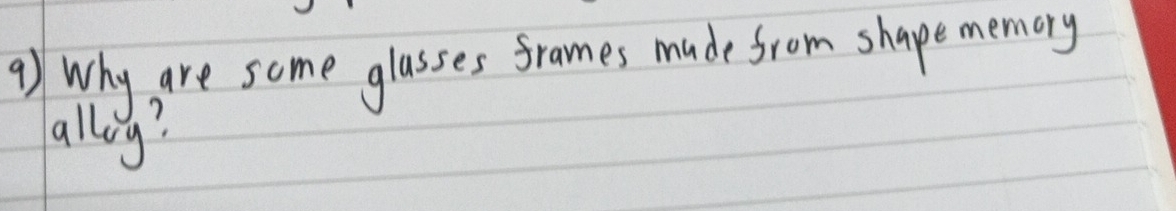 9) Why are some glasses frames made from shape memory
alloy?